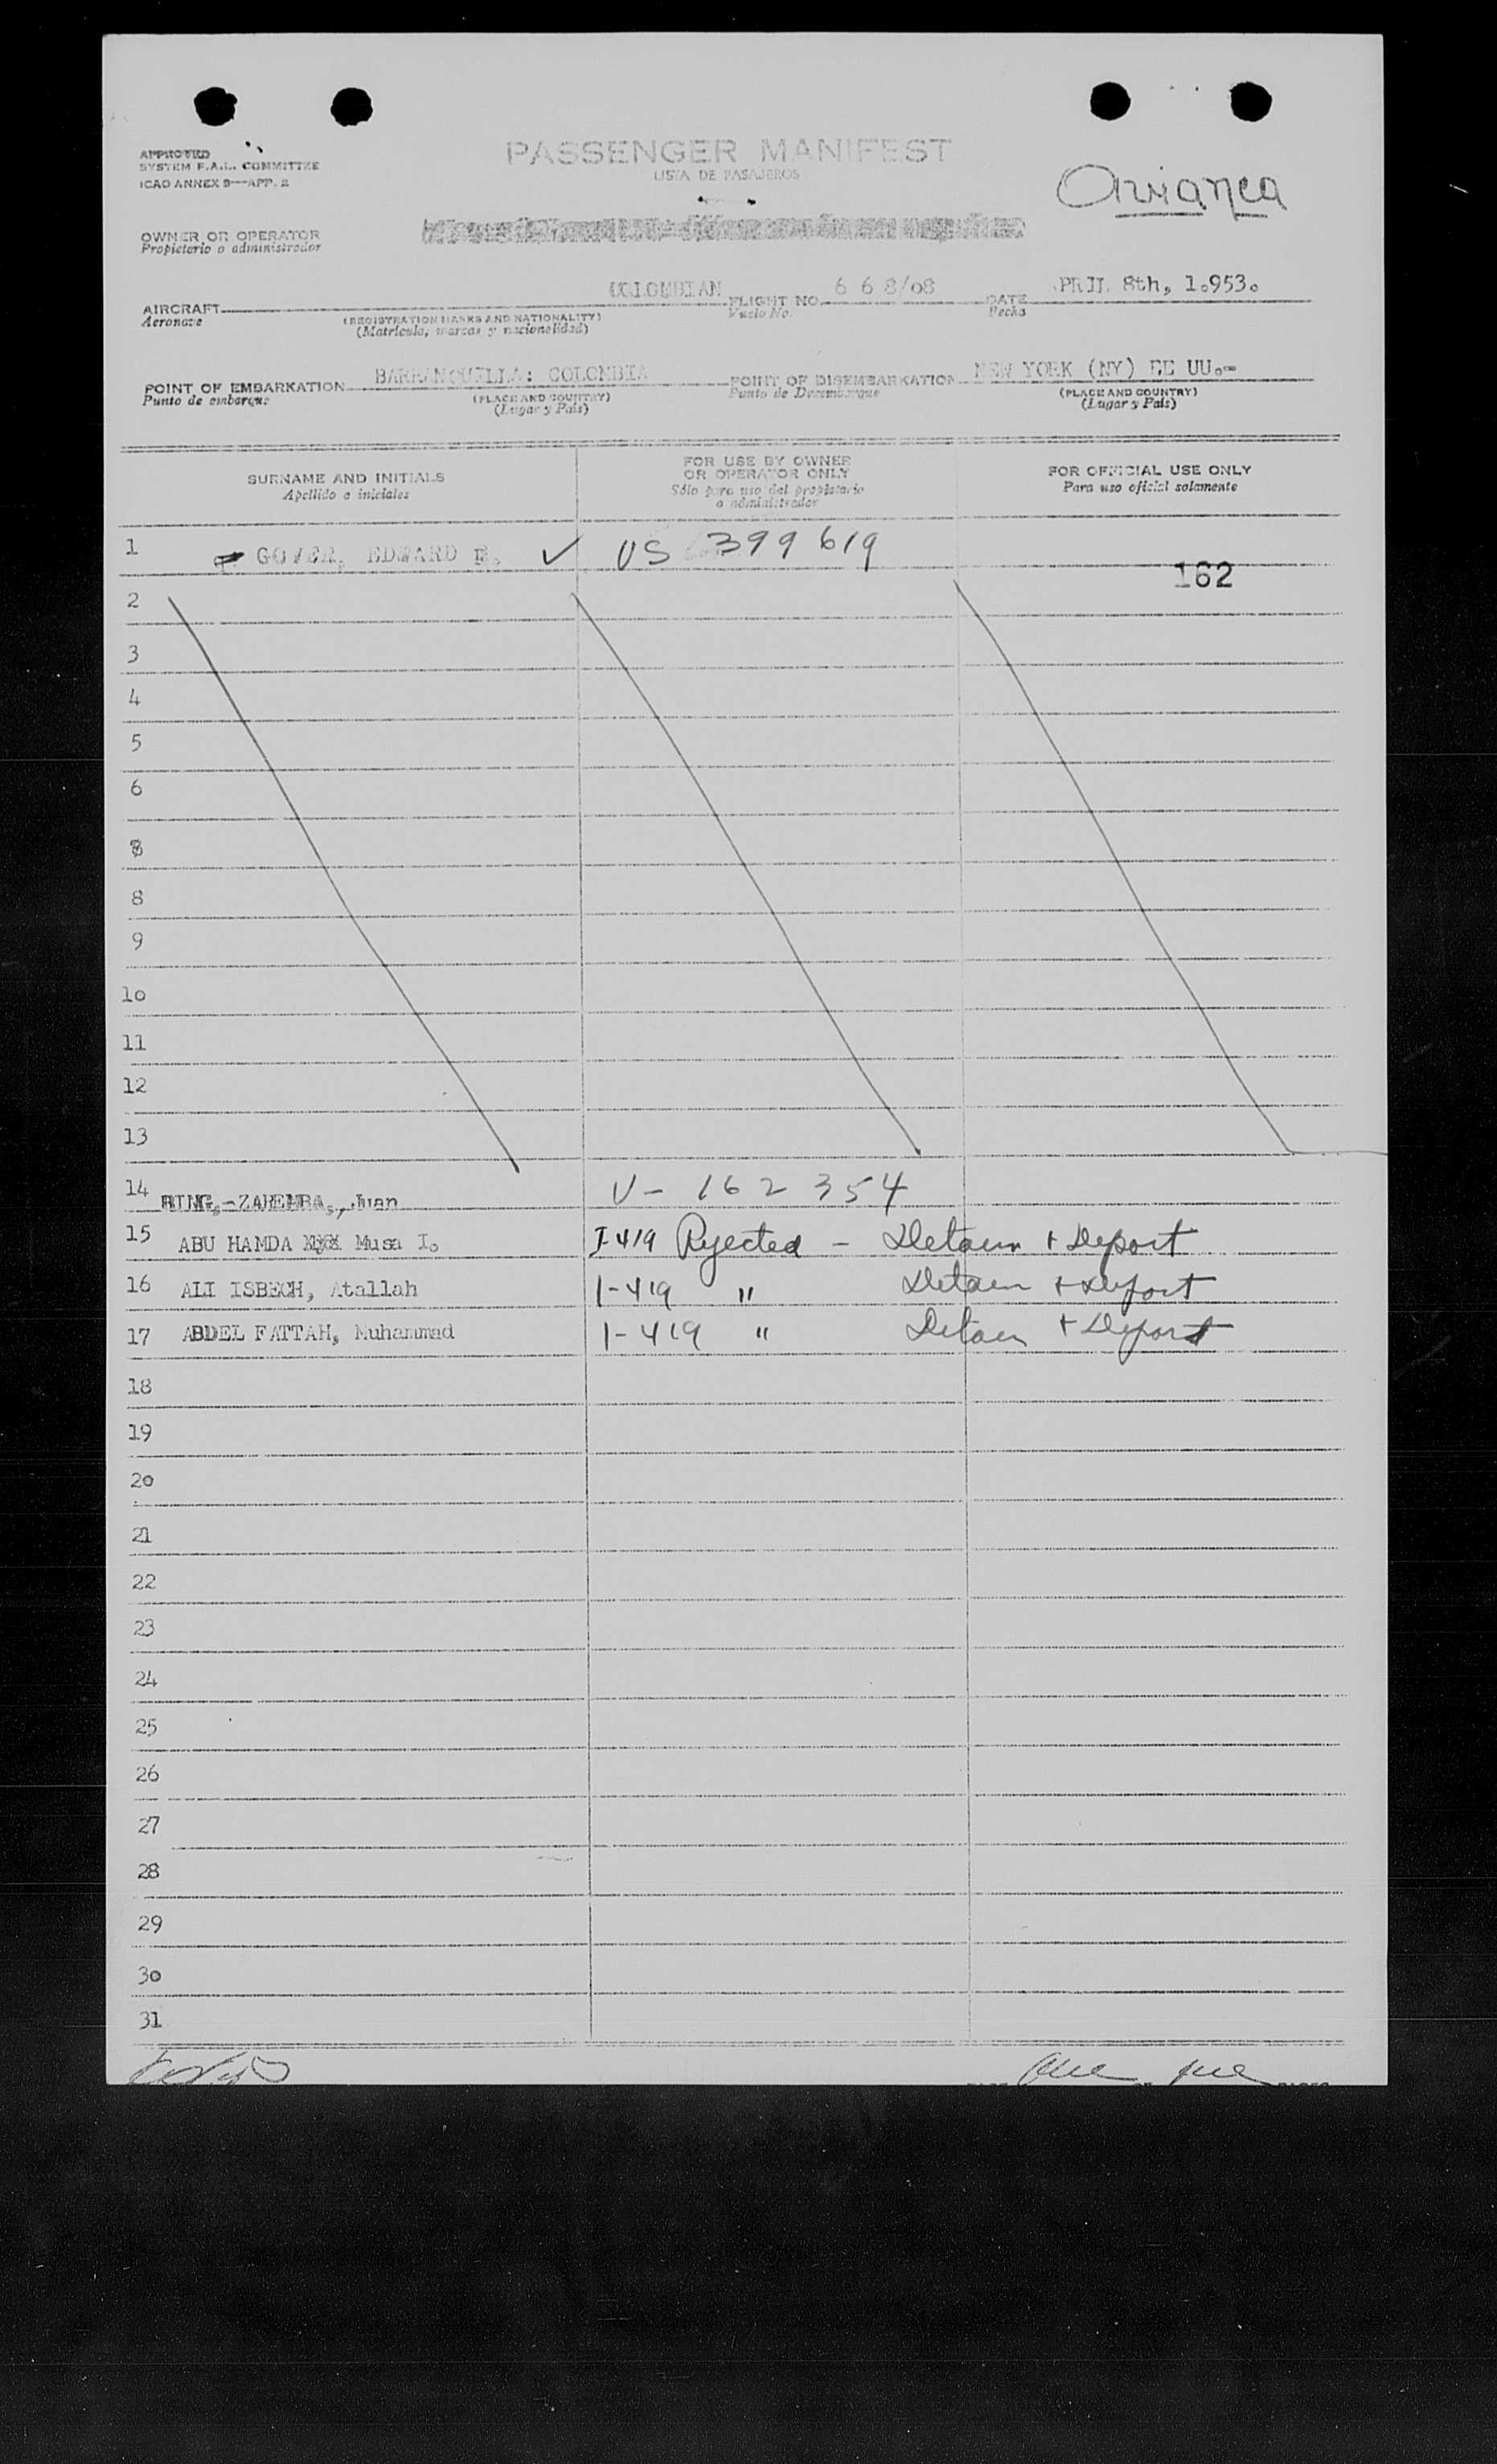 APPROVED
SYSTEM F.A.L. COMMITTEE
ICAO ANNEX 9—APP. 2
PASSENGER MANIFEST
LISTA DE PASAJEROS
Avianca
OWNER OR OPERATOR
Propietario o administrador
AIRCRAFT COLOMBIAN FLIGHT NO. 6 6 8/08 DATE PRIL 8th, 1.953.
Aeronave (REGISTRATION MARKS AND NATIONALITY) Vuelo No. Fecha
(Matrícula, marcas y nacionalidad)
POINT OF EMBARKATION BARRANQUILLA: COLOMBIA POINT OF DISEMBARKATION NEW YORK (NY) EE UU.-
Punto de embarque (PLACE AND COUNTRY) Punto de Desembarque (PLACE AND COUNTRY)
(Lugar y País) (Lugar y País)
SURNAME AND INITIALS FOR USE BY OWNER OR OPERATOR ONLY FOR OFFICIAL USE ONLY
Apellido e iniciales Sólo para uso del propietario o administrador Para uso oficial solamente
1 GOVER, EDWARD E. ✓ US 399619
162
2
3
4
5
6
8
9
10
11
12
13
14 RING,-ZAREMBA, Juan V- 162354
15 ABU HAMDA Musa I. I-419 Rejected - Detain + Deport
16 ALI ISBECH, Atallah I-419 " Detain + Deport
17 ABDEL FATTAH, Muhammad I-419 " Detain + Deport
18
19
20
21
22
23
24
25
26
27
28
29
30
31